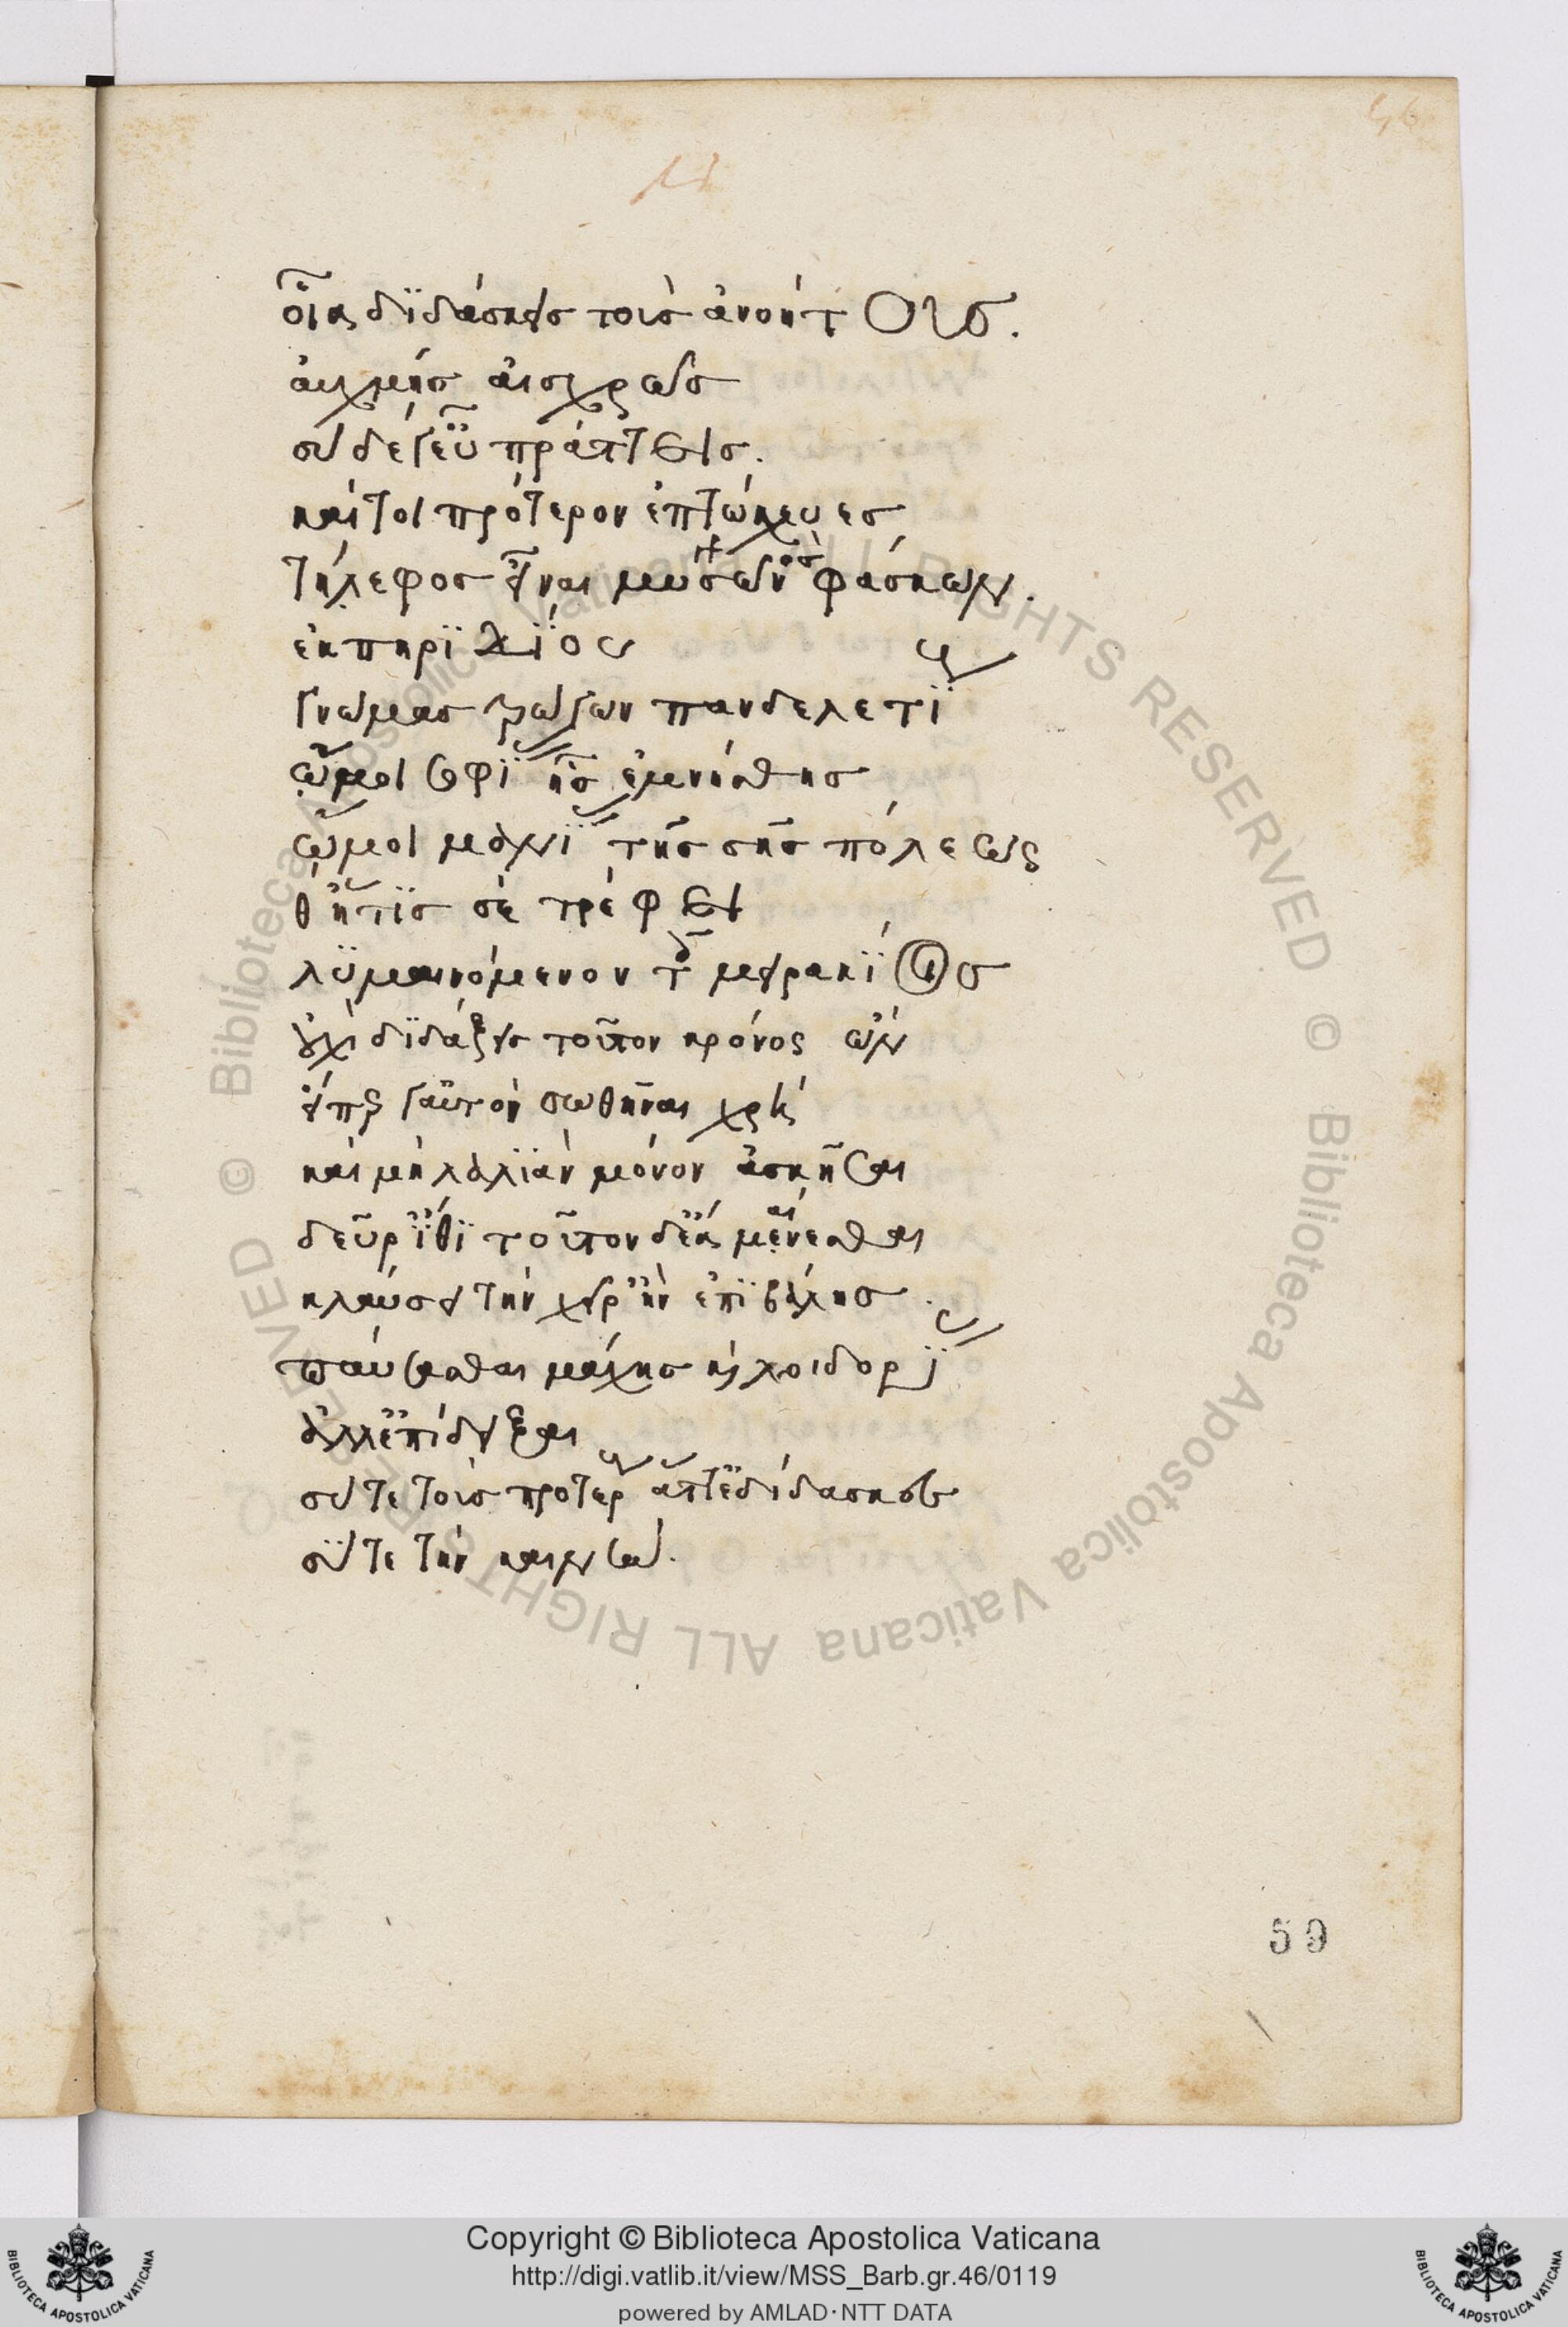 46
οἷα διδάσκεις τοὺς ἀνοήτους.
αὐχμεῖς αἰσχρῶς
σὺ δέ γ' εὖ πράττεις.
καίτοι πρότερον ἐπτώχευες
τήλεφος εἶναι μυσὸς φάσκων.
ἐκ πηριδίου
γνώμας τρώγων πανδελετίους
ὤμοι σοφίας ἧς ἐμνήσθης
ὤμοι μανίας τῆς σῆς πόλεως
θ' ἥτις σε τρέφει
λυμαινόμενον τοῖς μειρακίοις
οὐχὶ διδάξεις τοῦτον κρόνος ὢν
εἴπερ γ' αὐτὸν σωθῆναι χρή
καὶ μὴ λαλιὰν μόνον ἀσκῆσαι
δεῦρ' ἴθι τοῦτον δ' ἔα μαίνεσθαι
κλαύσει τὴν χεῖρ' ἢν ἐπιβάλῃς.
παύσασθαι μάχης καὶ λοιδορίας
ἀλλ' ἐπίδειξαι
σύ τε τοὺς προτέρους ἅττ' ἐδίδασκες
σύ τε τὴν καινὴν.
59
Copyright © Biblioteca Apostolica Vaticana
http://digi.vatlib.it/view/MSS_Barb.gr.46/0119
powered by AMLAD·NTT DATA
BIBLIOTECA APOSTOLICA VATICANA
BIBLIOTECA APOSTOLICA VATICANA
© Biblioteca Apostolica Vaticana ALL RIGHTS RESERVED © Biblioteca Apostolica Vaticana ALL RIGHTS RESERVED